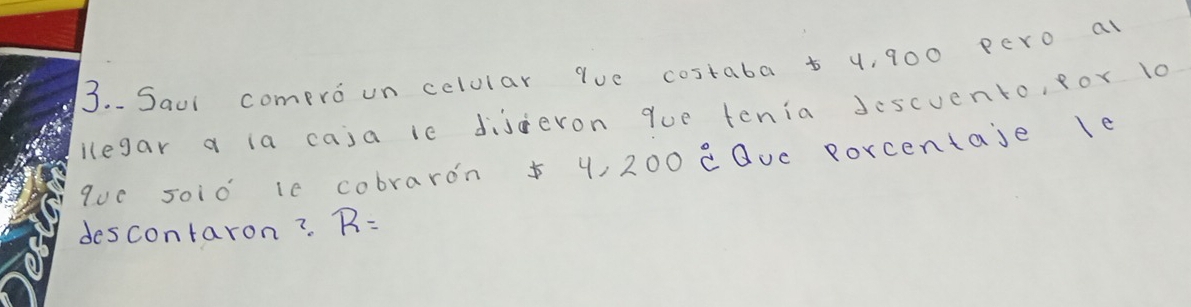 3.. Saul compró un celular que costaba $ 4,900 pero al
llegar a la caja le dijeron que tenía descuento, por lo
que soló le cobrarón $ 4,200 ¿Que porcentaje le
descontaron?. R=
Design